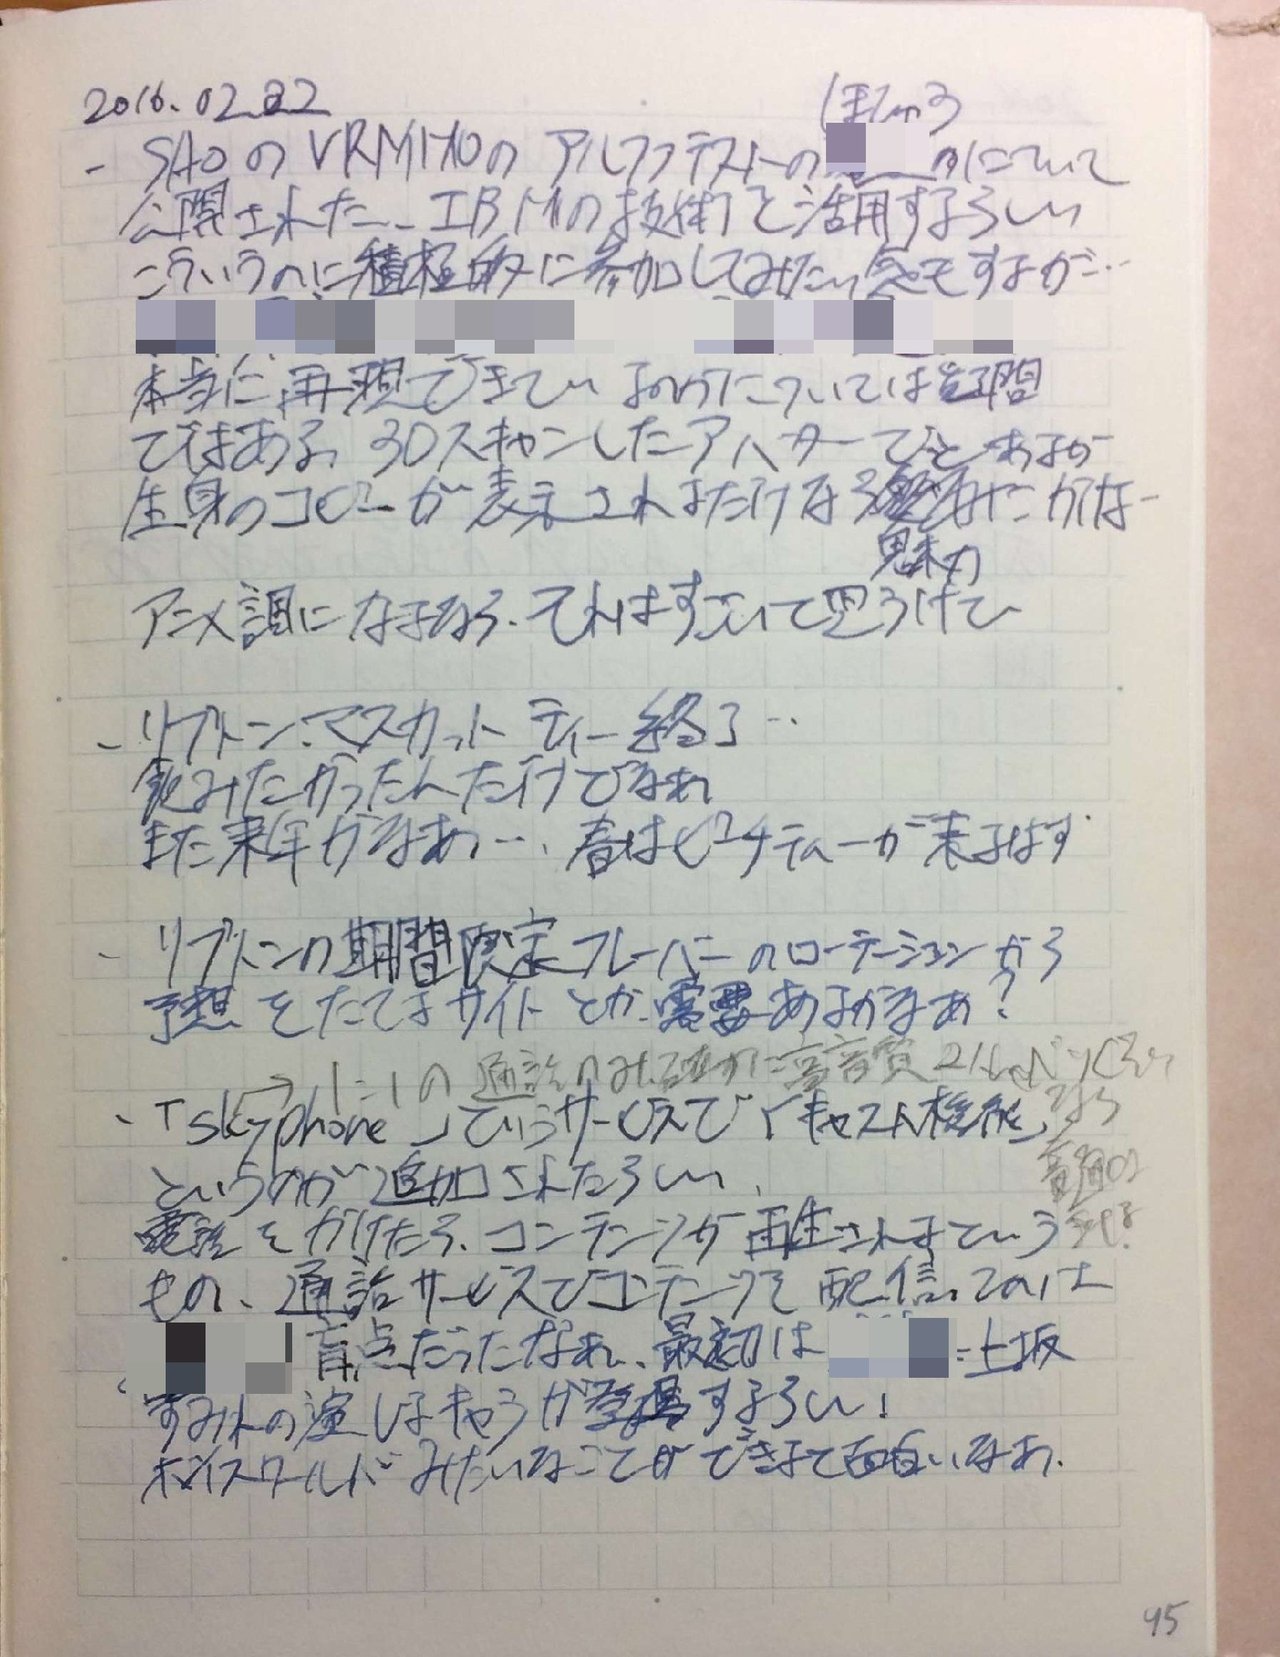 2016.02.22
ぼしゅう
- SAOのVRMMOのアルファテストの についいて
公開された、IBMの技術を活用するらしい
こういうのに積極的に参加してみたい気もするが…
本当に再現できているのかについては疑問
ではある、3Dスキャンしたアバターでとあるが
生身のコピーが表示されるだけなら かな-
魅力
アニメ調になるなら、それはすごいて思うけど
- リプトン、マスカットティー終了…
飲みたかったんだけどなあ
また来年かなあ…、春はピーチティーが来るはず
- リプトンの期間限定フレーバーのローテーションから
予想をたてるサイトとか、需要あるかなあ?
→1:1の通話のみ、確かに高音質
- 「skyphone」ていうサービスで「キャスト機能」
なら
というのが追加されたらしい、
普通の
電話をかけたら、コンテンツが再生されるていう
もの、通話サービスでコンテンツを配信てのは
盲点だったなあ、最初は 上坂
すみれの演じるキャラが登場するらしい!
ボイスワールドみたいなことができるて面白いなあ、
95